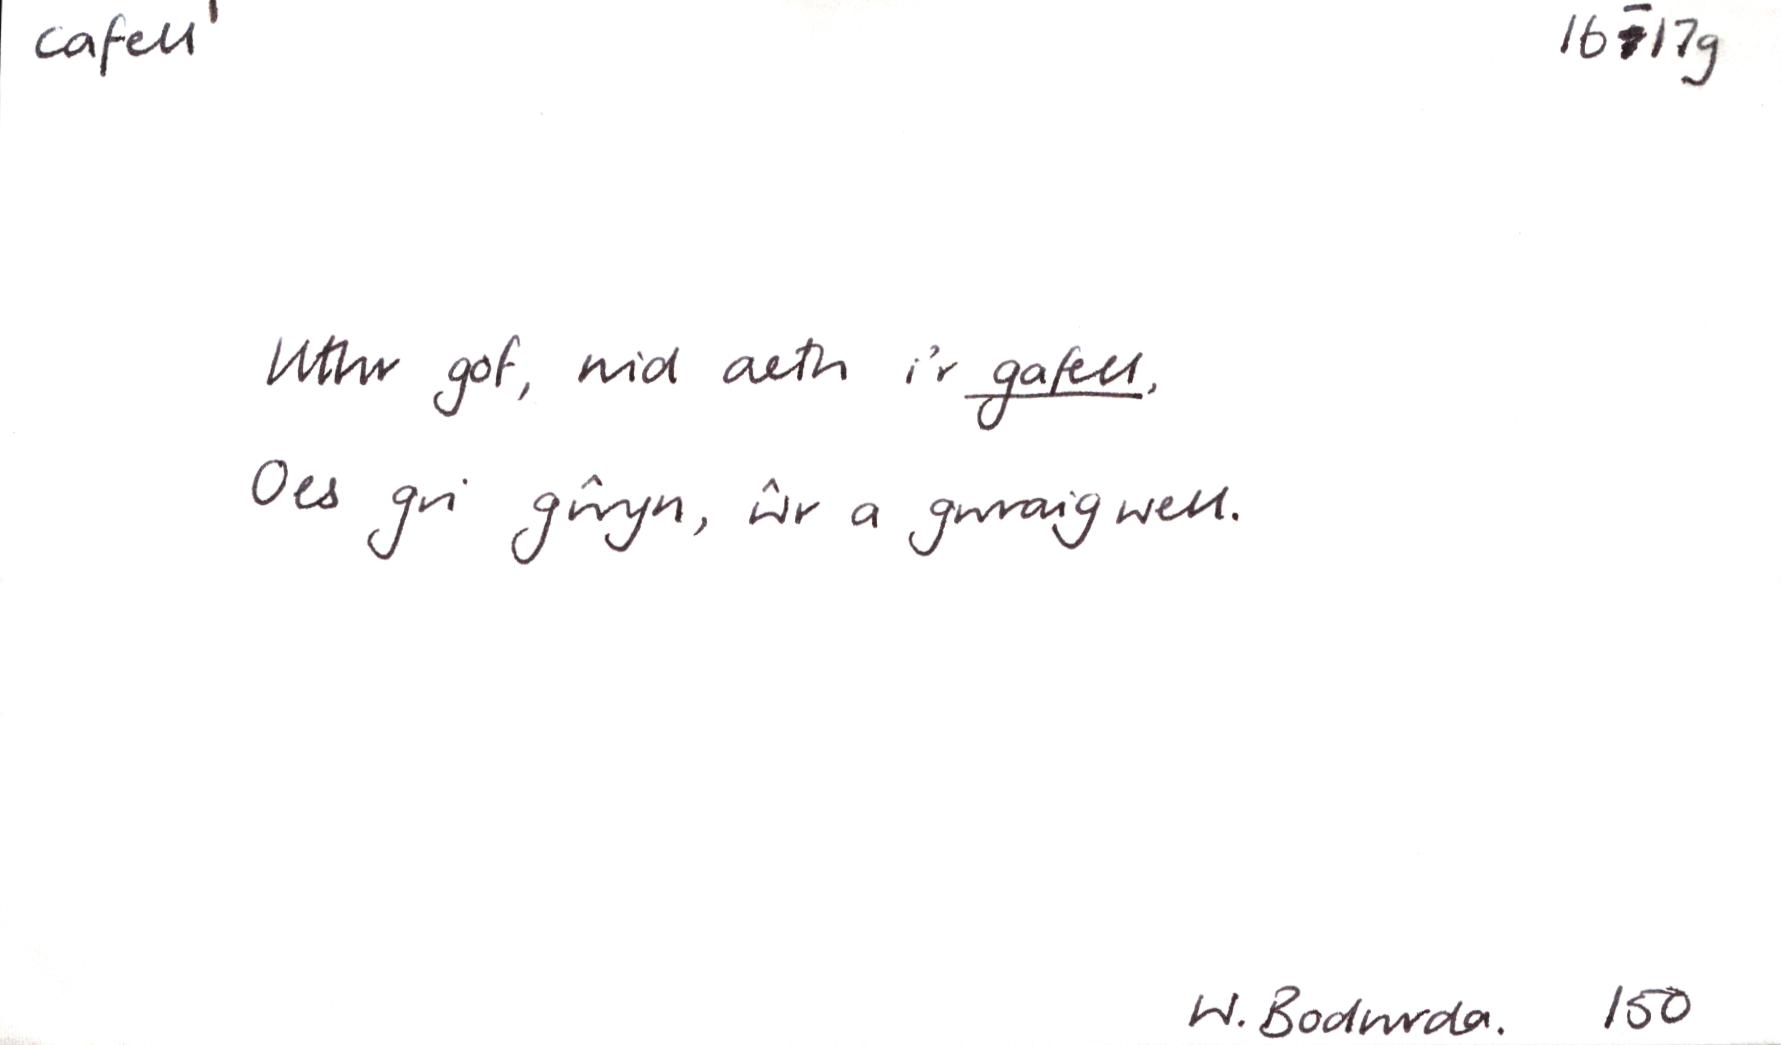 cafell¹ 16-17g
Uthr gof, nid aeth i'r gafell,
Oes gri gŵyn, ŵr a gwraig well.
W. Bodwrda. 150